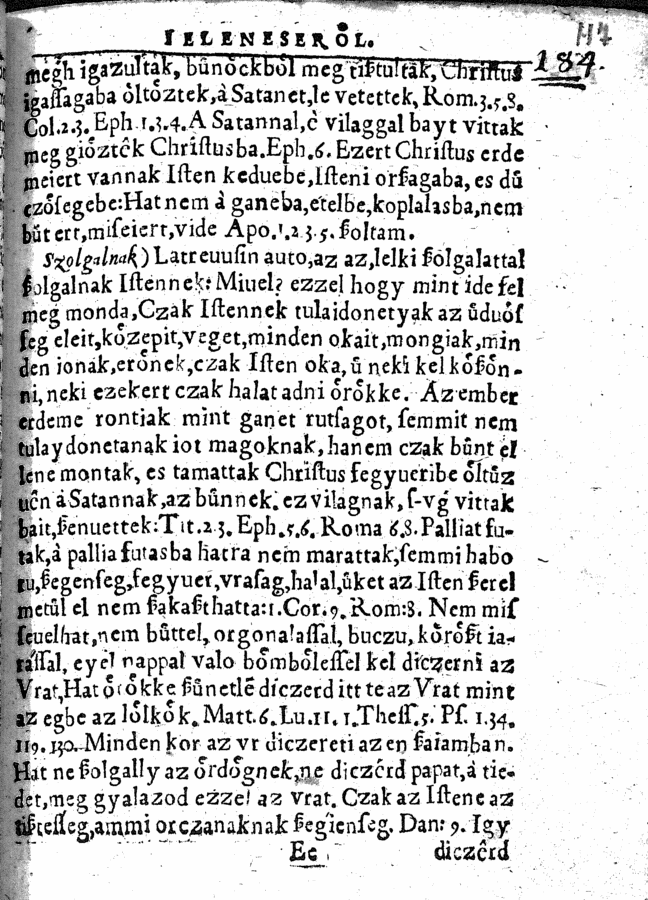 IELENESERÖL.
117
184.
mégh igazultak, bűnöckböl meg tißtultak, Chriſtus
igaſſagaba öltöztek, à Satanet, le vetettek, Rom. 3. 5. 8.
Col. 2. 3. Eph. 1. 3. 4. A Satannal, è vilaggal bayt vittak
meg giöztēk Chriſtusba. Eph. 6. Ezert Chriſtus erde
meiert vannak Iſten keduebe, Iſteni orßagaba, es dů
czöſegebe: Hat nem à ganeba, etelbe, koplalasba, nem
bűt ert, miſeiert, vide Apo. 1. 2. 3. 5. ßoltam.
Szolgalnak) Latreuuſin auto, az az, lelki ßolgalattal
ßolgalnak Iſtennek: Miuel? ezzel hogy mint ide fel
meg monda, Czak Iſtennek tulaidonetyak az ůduöſ
ſeg eleit, közepit, veget, minden okait, mongiak, min
den ionak, erönek, czak Iſten oka, ů neki kel köſön-
ni, neki ezekert czak halat adni örökke. Az ember
erdeme rontiak mint ganet rutſagot, ſemmit nem
tulaydonetanak iot magoknak, hanem czak bűnt el
lene montak, es tamattak Chriſtus fegyueribe öltůz
uēn à Satannak, az bűnnek. ez vilagnak, ſ-vǵ vittak
bait, ßenuettek: Tit. 2. 3. Eph. 5. 6. Roma 6. 8. Palliat fu-
tak, à pallia futasba hatra nem marattak, ſemmi habo
ru, ßegenſeg, fegyuer, vraſag, halal, ůket az Iſten ßerel
metůl el nem ßakaßthatta: 1. Cor. 9. Rom: 8. Nem miſ
ſeuelhat, nem bůttel, orgonalaſſal, buczu, körößt ia-
raſſal, eyel nappal valo bömböleſſel kel diczerni az
Vrat, Hat örökke ßůnetlē diczerd itt te az Vrat mint
az egbe az lölkök. Matt. 6. Lu. 11. 1. Theſſ. 5. Pſ. 1. 34.
119. 130. Minden kor az vr diczereti az en ßaiamban.
Hat ne ßolgally az ördögnek, ne diczērd papat, à tie-
det, meg gyalazod ezzel az vrat. Czak az Iſtene az
tißteſſeg, ammi orczanaknak ßegienſeg. Dan: 9. Igy
Ee
diczērd